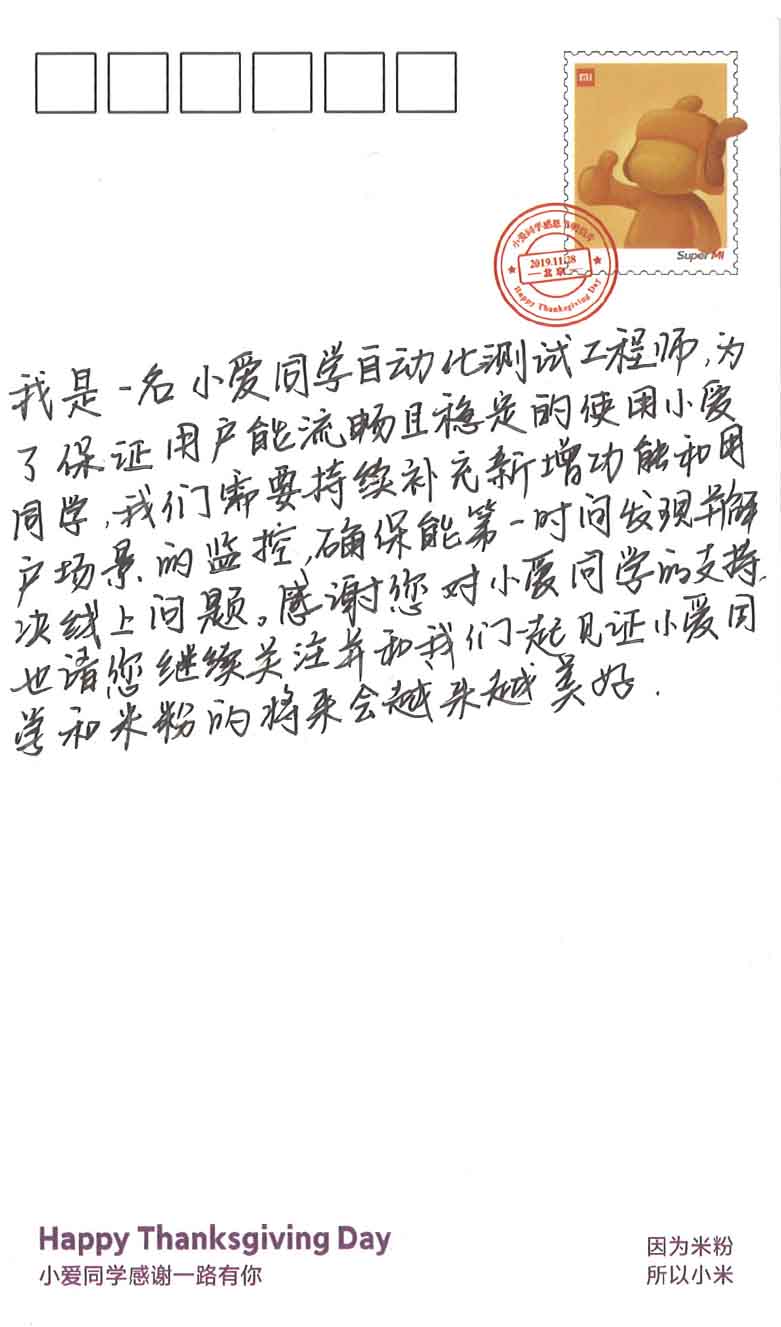 mi
Super MI
小爱同学感恩节明信片
2019.11.28
北京
Happy Thanksgiving Day
我是一名小爱同学自动化测试工程师,为
了保证用户能流畅且稳定的使用小爱
同学,我们需要持续补充新增功能和用
户场景的监控,确保能第一时间发现并解
决线上问题。感谢您对小爱同学的支持,
也请您继续关注并和我们一起见证小爱同
学和米粉的将来会越来越美好.
Happy Thanksgiving Day
小爱同学感谢一路有你
因为米粉
所以小米